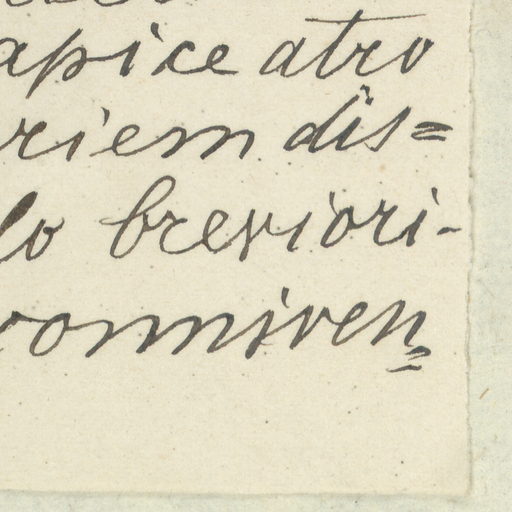 apice atro
riem dis=
lo breviori-
conniven=